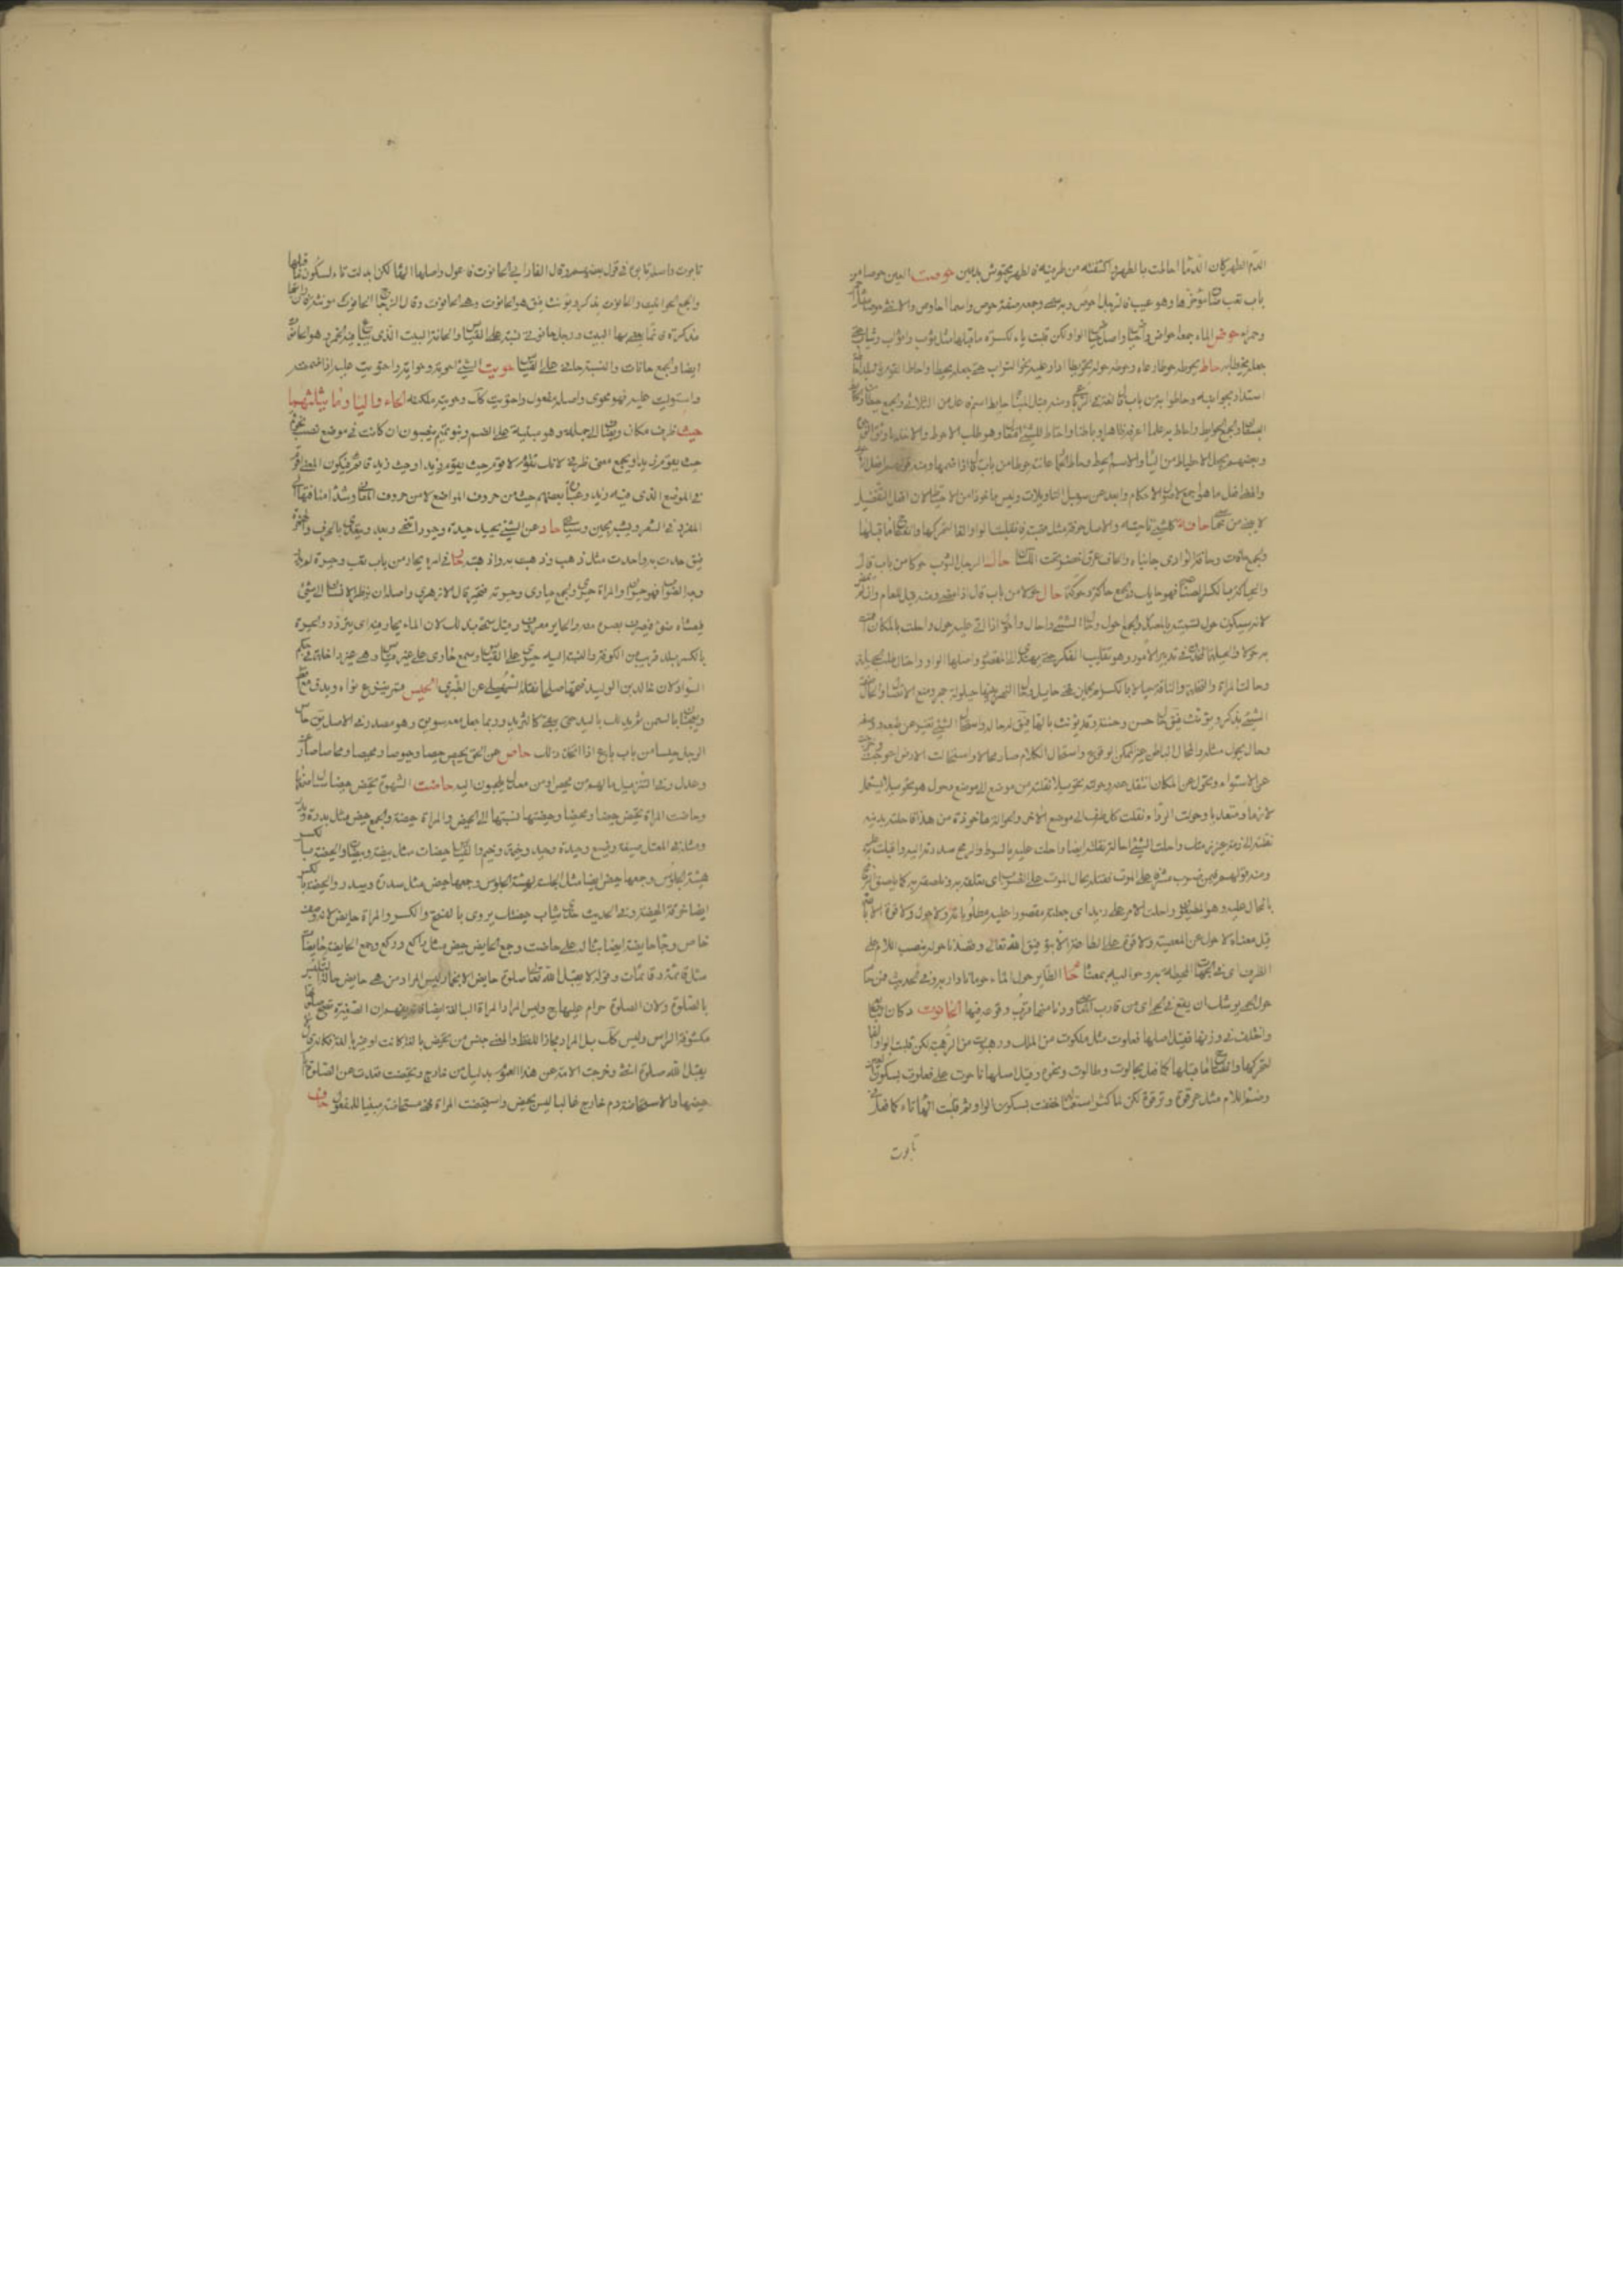 الدم الطهر كان الدما احاطت بالطهر واكتنفته من طرفيه فالطهر محتوش بدمين حوصت العين حوصا من
باب تعب ضاق مؤخرها وهو عيب فالرجل احوص وبه سمي وجمع صفة حوص واسما احاوص والانثى حوصاء مثل احمر
وحمراء حوض الماء جمعه احواض وحياض واصل حياض الواو لكن قلبت ياء لكسرة ما قبلها مثل ثوب واثواب وثياب
حاطه يحوطه حوطا رعاه وحوط حوله تحويطا ادار عليه نحو التراب حتى جعله محيطا واحاط القوم بالبلد
استداروا بجوانبه وحاطوا به من باب قال لغة في الرباعي ومنه قيل للبناء حايط اسم فاعل من الثلاثي والجمع حيطان
البستان والجمع الحوايط واحاط به علما عرفه ظاهرا وباطنا واحتاط للشيء افتعال وهو طلب الاحوط والاخذ باوثق
وبعضهم يجعل الاحتياط من الياء والاسم الحيط وحاط الحمار عانته حوطا من باب قال اذا ضمها ومنه قولهم افعل
والمعنى افعل ما هو اجمع لاصول الاحكام وابعد عن شوايب التاويلات وليس ماخوذا من الاحتياط لان افعل التفضيل
لا يبنى من حافة كل شيء ناحيته والاصل حوفة مثل قصبة فانقلبت الواو الفا لتحركها وانفتاح ما قبلها
والجمع حافات وحافتا الوادي جانباه والحاف عرق اخضر تحت اللسان حاك الرجل الثوب حوكا من باب قال
والحياكة بالكسر الصناعة فهو حايك والجمع حاكة وحوكة حال حولا من باب قال اذا مضى ومنه قيل للعام
لانه سيكون حول تسمية بالمصدر والجمع احوال وحال الشيء واحال واحول اذا اتى عليه حول واحلت بالمكان
به حولا والحيلة الحذق في تدبير الامور وهو تقليب الفكر حتى يهتدي الى المقصود واصلها الواو واحتال طلب الحيلة
وحالت المراة والنخلة والناقة حيالا بالكسر لم تحمل فهي حايل وحال النهر بيننا حيلولة حجز ومنع الاتصال والحال صفة
الشيء يذكر ويؤنث فيقال حال حسن وحسنة وقد يؤنث بالهاء فيقال حالة واستحال الشيء تغير عن طبعه ووصفه
وحال يحول مثله والمحال الباطل غير الممكن الوقوع واستحال الكلام صار محالا واستحالت الارض اعوجت وخرجت
عن الاستواء وتحول عن المكان انتقل عنه وحولته تحويلا نقلته من موضع الى موضع وحول هو تحويلا يستعمل
لازما ومتعديا وحولت الرداء نقلت كل طرف الى موضع الاخر والحوالة ماخوذة من هذا فاحلته بدينه
نقلته الى ذمة غير ذمتك واحلت الشيء احالة نقلته ايضا واحلت عليه بالسوط والرمح سددته اليه واقبلت عليه
ومنه قولهم فيمن ضرب مشرفا على الموت فقتله يحال الموت على الضرب اي نعلقه به ونلصقه به كما يلصق الرمح
بالمحال عليه وهو المطعون واحلت الامر على زيد اي جعلته مقصورا عليه مطلوبا به ولا حول ولا قوة الا بالله
قيل معناه لا حول عن المعصية ولا قوة على الطاعة الا بتوفيق الله تعالى وقعدنا حوله بنصب اللام على
الظرف اي في الجهات المحيطة به وحواليه بمعناه حام الطاير حول الماء حومانا دار به وفي الحديث فمن حام
حول الحمى يوشك ان يقع فيه اي من قارب المعاصي ودنا منها قرب وقوعه فيها الحانوت دكان البايع
واختلف في وزنها فقيل اصلها فعلوت مثل ملكوت من الملك ورهبوت من الرهبة لكن قلبت الواو الفا
لتحركها وانفتاح ما قبلها كما فعل بجالوت وطالوت ونحوه وقيل اصلها حانوت على فعلوت بسكون العين
وضم اللام مثل عرقوة وترقوة لكن لما كثر استعمالها خففت بسكون الواو ثم قلبت الهاء تاء كما فعل في
تابوت
تابوت واصله تابوه في قول بعضهم وقال الفارابي الحانوت فاعول واصلها الهاء لكن ابدلت تاء لسكون ما قبلها
والجمع الحوانيت والحانوت يذكر ويؤنث فيقال هو الحانوت وهي الحانوت وقال الزجاج الحانوت مونثة فان رايتها
مذكرة فانما يعنى بها البيت ورجل حانوتي نسبة على القياس والحانة البيت الذي يباع فيه الخمر وهو الحانوت
ايضا والجمع حانات والنسبة حاني على القياس حويت الشيء احويه حواية واحتويت عليه اذا ضممته
واستوليت عليه فهو محوي واصله مفعول واحتويت كذلك وحويته ملكته الحاء والياء وما يثلثهما
حيث ظرف مكان ويضاف الى جملة وهو مبنية على الضم وبنو تميم ينصبون ان كانت في موضع نصب نحو قم
حيث يقوم زيد او يجمع معنى ظرفين لانك تقول اقوم حيث يقوم زيد او حيث زيد قائم فيكون المعنى اقوم
في الموضع الذي فيه زيد وعبارة بعضهم حيث من حروف المواضع لا من حروف المعاني وشذ اضافتها الى
المفرد في الشعر ويشبه بحين وسياتي حاد عن الشيء يحيد حيدة وحيودا تنحى وبعد ويتعدى بالحرف والهمزة
فيقال حدت به واحدته مثل ذهب وذهبت به واذهبته حار في امره يحار من باب تعب وحيرة لم يدر
وجه الصواب فهو حيران والمراة حيرى والجمع حيارى وحيرته فتحير قال الازهري واصله ان ينظر الانسان الى شيء
فيغشاه ضوء فيصرف بصره عنه والحاير معروف قيل سمي بذلك لان الماء يحار فيه اي يتردد والحيرة
بالكسر بلد قريب من الكوفة والنسبة اليه حيري على القياس وسمع حاري على غير قياس وهي غير داخلة في حكم
السواد لان خالد بن الوليد فتحها صلحا نقله السهيلي عن الطبري الحيس تمر ينزع نواه ويدق مع اقط
ويعجنان بالسمن ثم يدلك باليد حتى يبقى كالثريد وربما جعل معه سويق وهو مصدر في الاصل يقال حاس
الرجل حيسا من باب باع اذا اتخذ ذلك حاص عن الحق يحيص حيصا وحيوصا ومحيصا ومحاصا حاد عنه
وعدل وفي التنزيل ما لهم من محيص اي من معدل يلجؤن اليه حاضت السمرة تحيض حيضا سال صمغها
وحاضت المراة تحيض حيضا ومحيضا وحيضتها نسبتها الى الحيض والمرة حيضة والجمع حيض مثل بدرة وبدر
ومثله في المعتل ضيعة وضيع وحيدة وحيد وخيمة وخيم والقياس حيضات مثل بيضة وبيضات والحيضة بالكسر
هيئة الحيض مثل الجلسة لهيئة الجلوس وجمعها حيض ايضا مثل سدرة وسدر والحيضة بالكسر
ايضا خرقة الحيض وفي الحديث خذي ثياب حيضتك يروى بالفتح والكسر والمراة حايض لانه وصف
خاص وجاء حايضة ايضا بناء له على حاضت وجمع الحايض حيض مثل راكع وركع وجمع الحايضة حايضات
مثل قائمة وقائمات وقوله لا يقبل الله صلوة حايض الا بخمار ليس المراد من هي حايض حالة التلبس
بالصلوة لان الصلوة حرام عليها ح وليس المراد المراة البالغة ايضا فانه يفهم ان الصغيرة تصح صلوتها
مكشوفة الراس وليس كذلك بل المراد مجازا للفظ والمعنى جنس من تحيض بالغة كانت او غير بالغة فكانه قال لا
يقبل الله صلوة انثى وخرجت الامة عن هذا العموم بدليل من خارج وتحيضت قعدت عن الصلوة ايام
حيضها والاستحاضة دم خارج غالبا ليس بحيض واستحيضت المراة فهي مستحاضة مبنيا للمفعول حاف